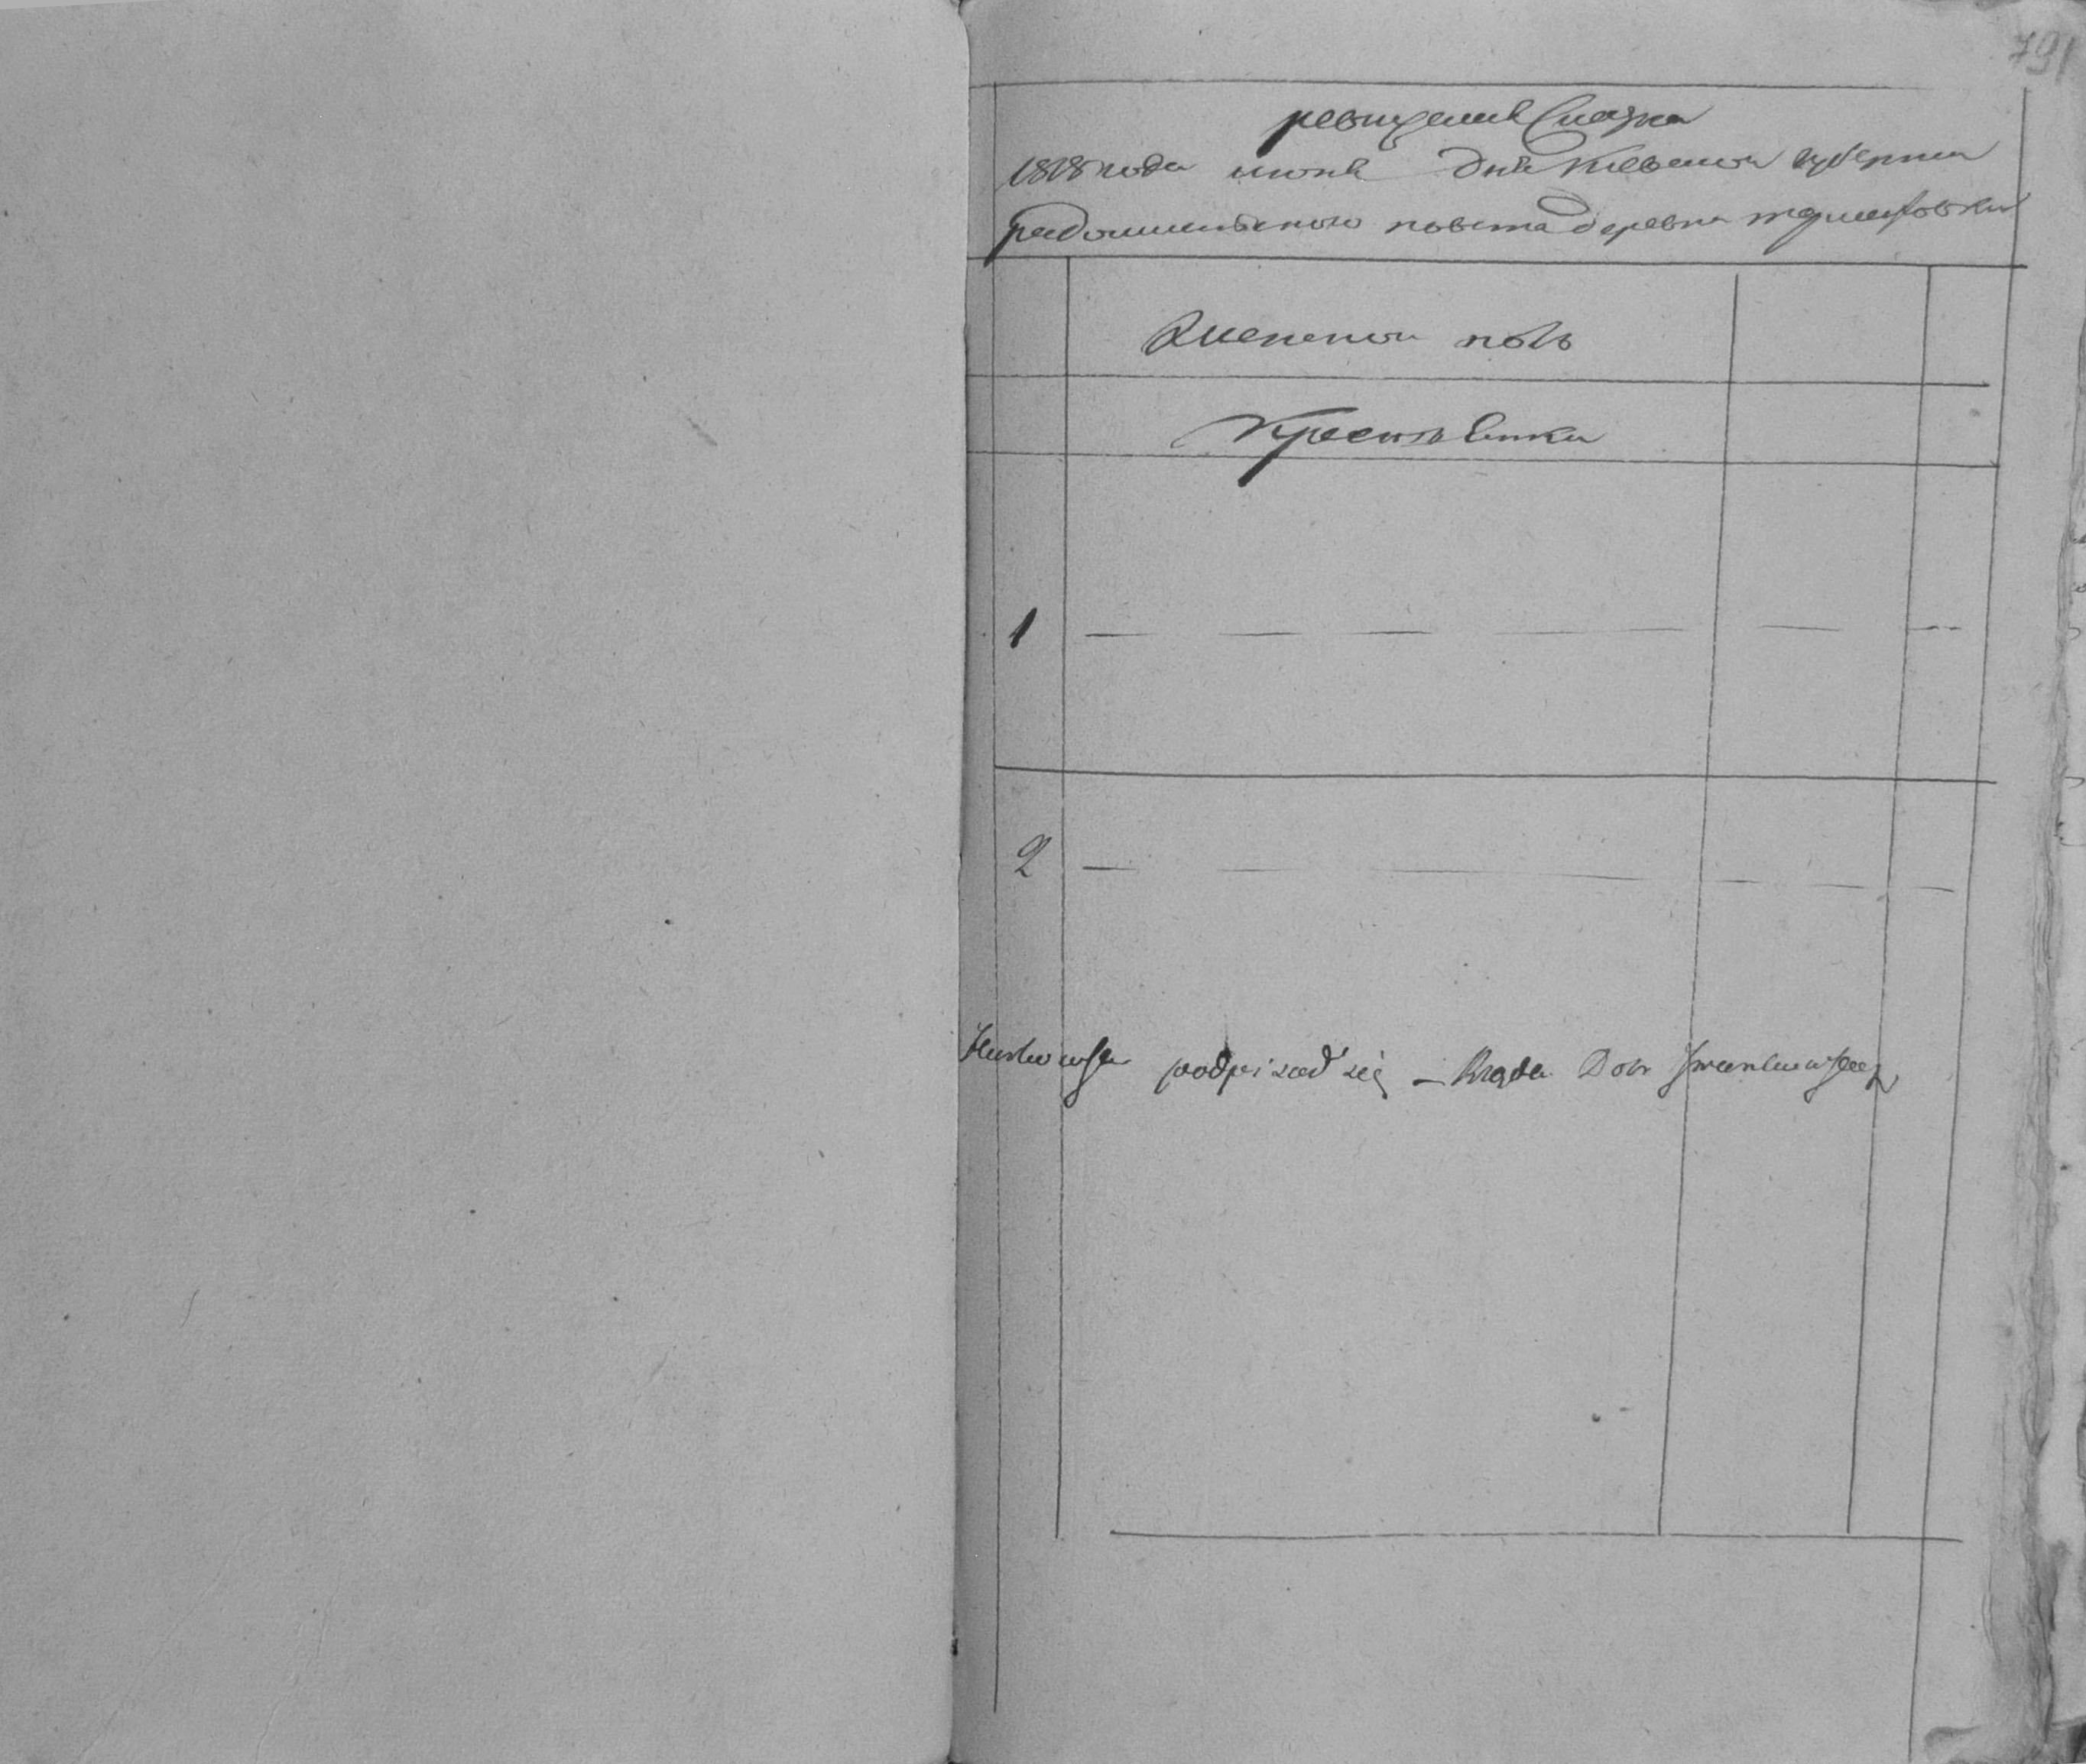 791
ревизская Сказка
1818 года июня дня Киевской губернии
радомысльского повета деревни
Женской полъ
Крестьянки
1 — — — — — —
2 — — — — — —
podpisał się —